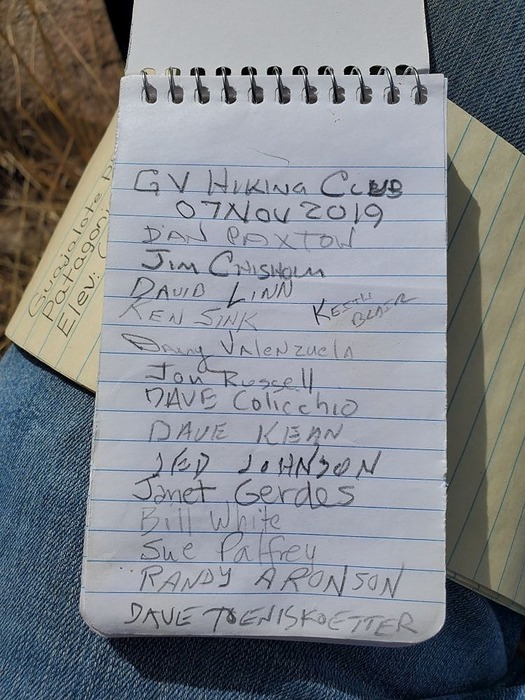 GV HIKING CLUB
07 NOV 2019
DAN PAXTON
JIM CHISHOLM
DAVID LINN
KEN SINK
KEITH
Danny Valenzuela
Jon Russell
DAVE Colicchio
DAVE KEAN
JED JOHNSON
Janet Gerdes
Bill White
Sue Palfrey
RANDY ARONSON
DAVE TOENISKOETTER
Guajalote
Patagoni
Elev: